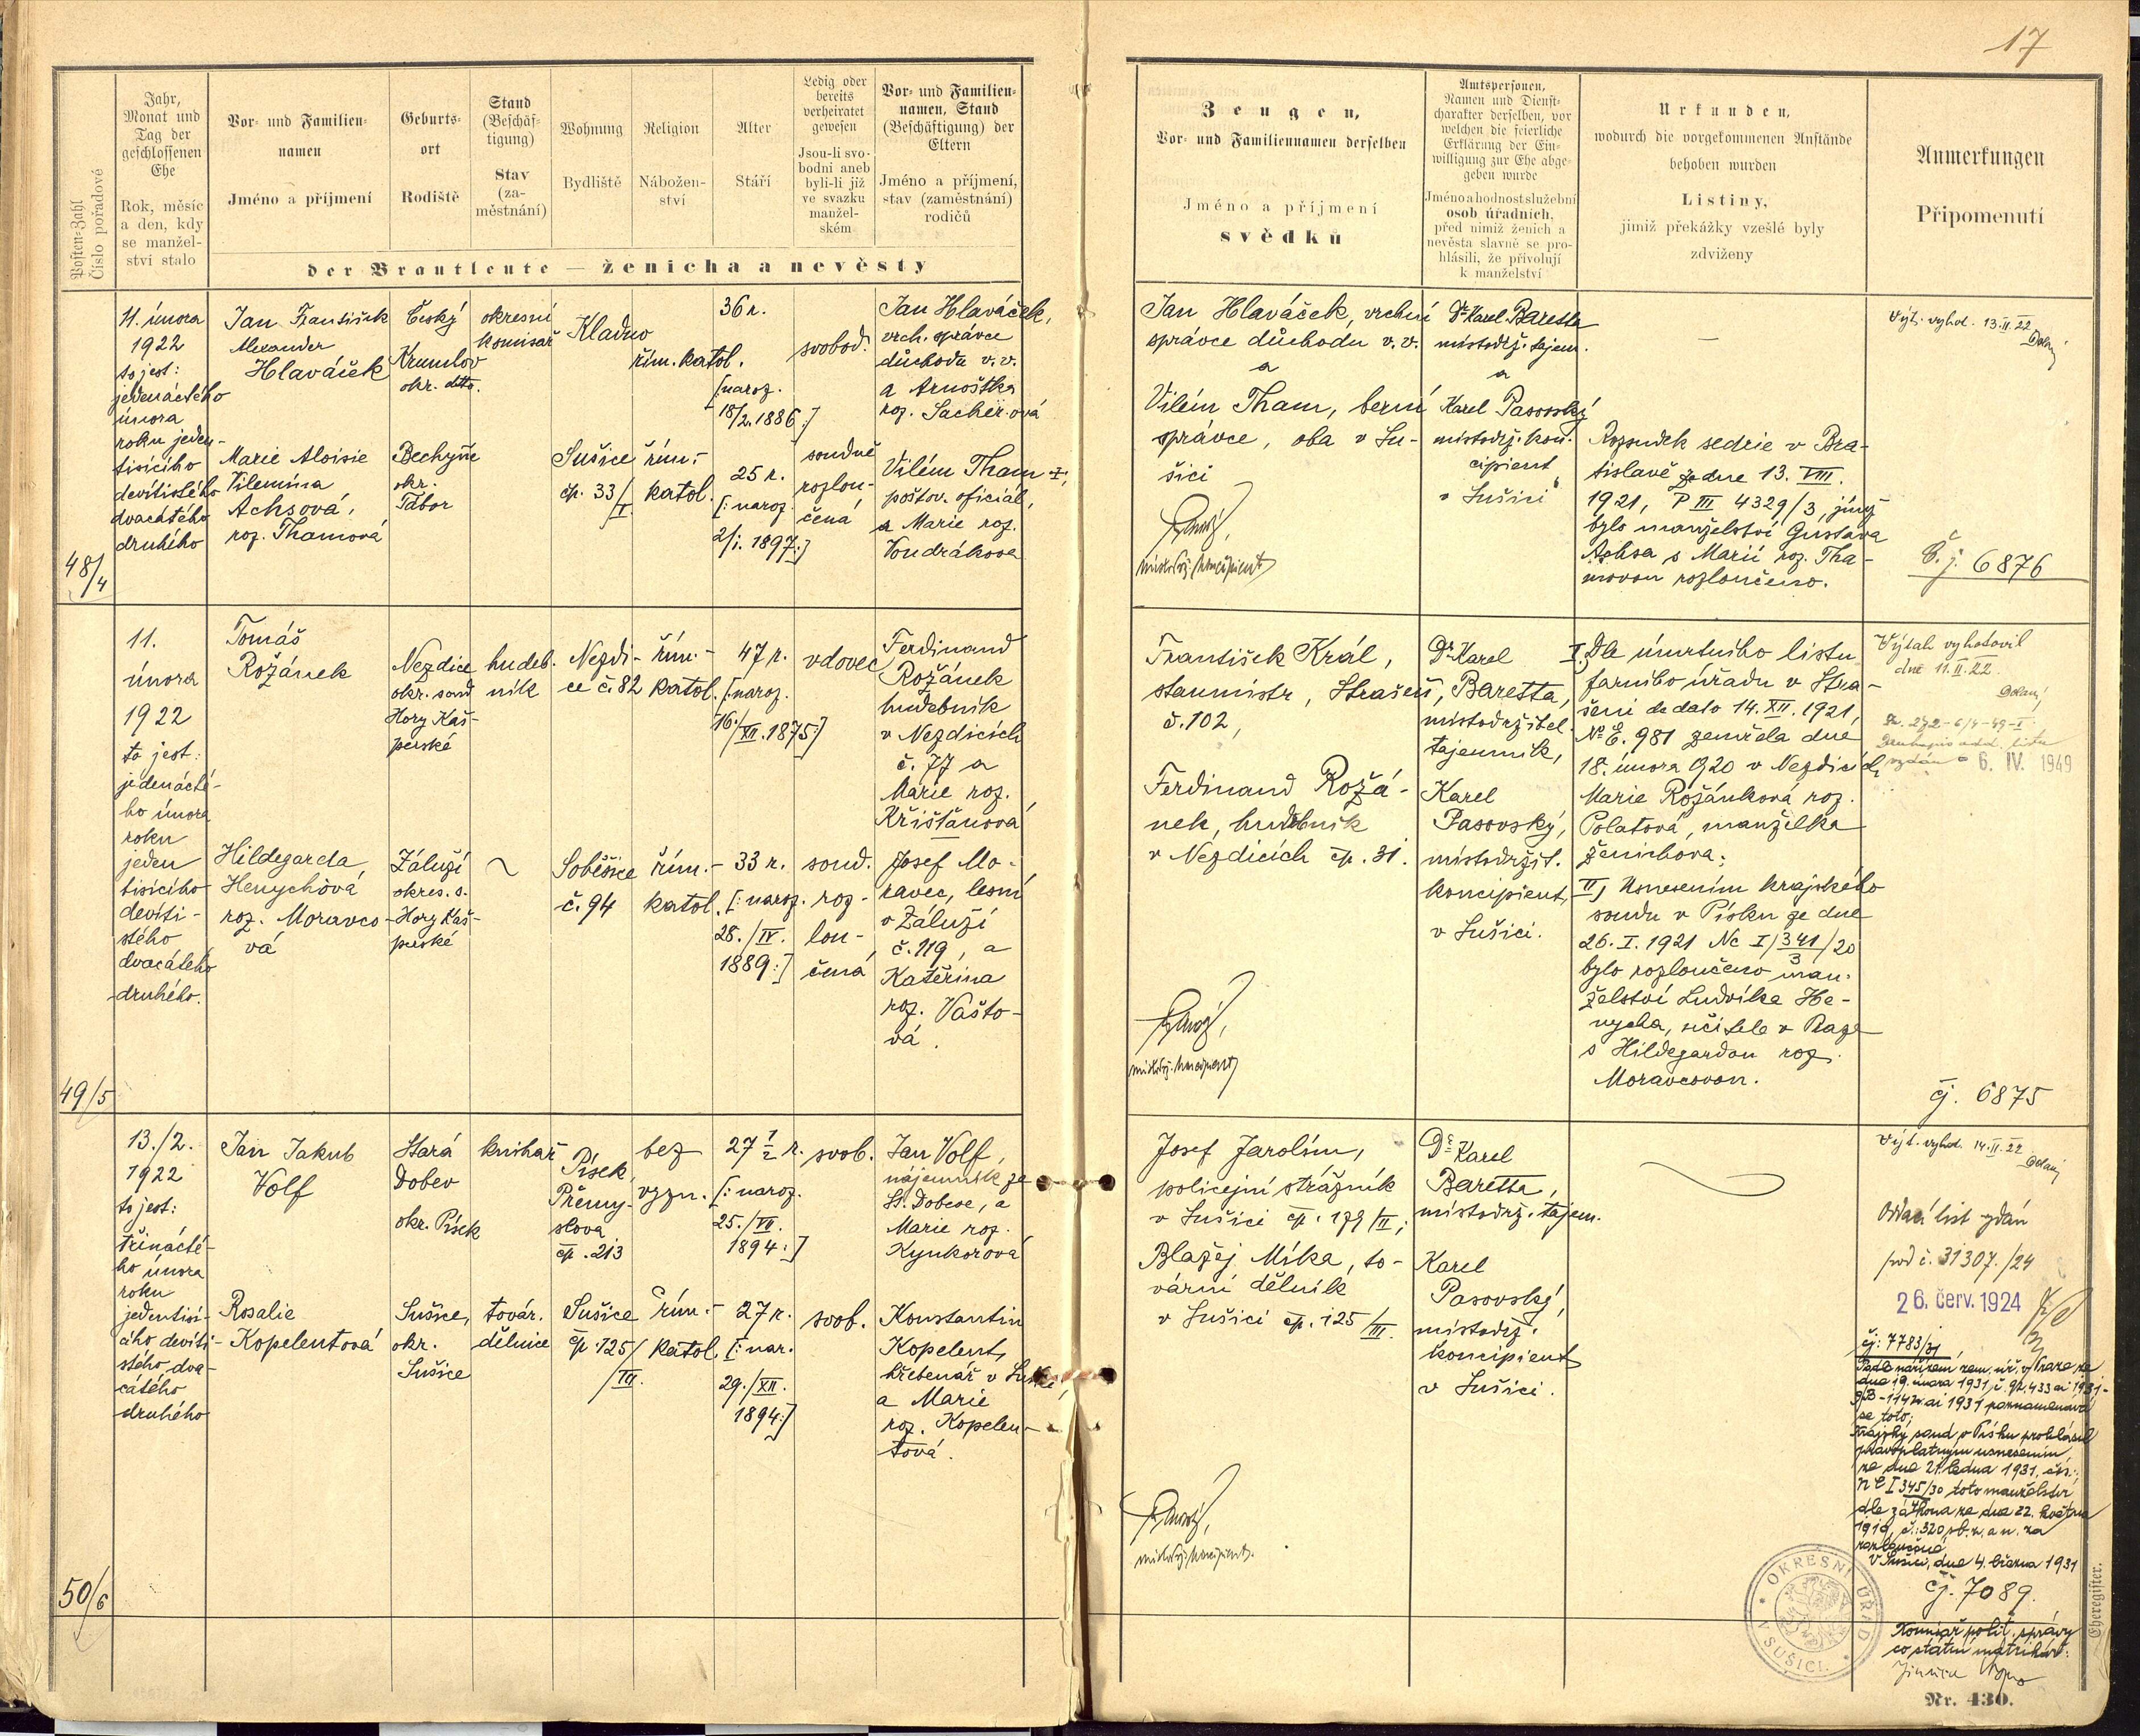 17
Posten-Zahl
Číslo pořadové
Jahr,
Monat und
Tag der
geschlossenen
Ehe
Rok, měsíc
a den, kdy
se manžel-
ství stalo
Vor- und Familien-
namen
Jméno a příjmení
Geburts-
ort
Rodiště
Stand
(Beschäf-
tigung)
Stav
(za-
městnání)
Wohnung
Bydliště
Religion
Nábožen-
ství
Alter
Stáří
Ledig oder
bereits
verheiratet
gewesen
Jsou-li svo-
bodni aneb
byli-li již
ve svazku
manžel-
ském
Vor- und Familien-
namen, Stand
(Beschäftigung) der
Eltern
Jméno a příjmení,
stav (zaměstnání)
rodičů
der Brautleute — ženicha a nevěsty
Zeugen,
Vor- und Familiennamen derselben
Jméno a příjmení
svědků
Amtspersonen,
Namen und Dienst-
charakter derselben, vor
welchen die feierliche
Erklärung der Ein-
willigung zur Ehe abge-
geben wurde
Jméno a hodnost služební
osob úředních,
před nimiž ženich a
nevěsta slavně se pro-
hlásili, že přivolují
k manželství
Urkunden,
wodurch die vorgekommenen Anstände
behoben wurden
Listiny,
jimiž překážky vzešlé byly
zdviženy
Anmerkungen
Připomenutí
48/4
11. února
1922
to jest:
jedenáctého
února
roku jeden-
tisícího
devítistého
dvacátého
druhého
Jan František
Alexander
Hlaváček
Český
Krumlov
okr. dtto.
okresní
komisař
Kladno
řím. katol.
36 r.
[naroz.
18/2. 1886:]
svobod.
Jan Hlaváček,
vrch. správce
důchodu v. v.
a Arnoštka
roz. Sacher-ová
Marie Aloisie
Vilemína
Achsová,
roz. Thamová
Bechyně
okr.
Tábor
Sušice
čp. 33/I
řím.-
katol.
25 r.
[:naroz.
2/I. 1897:]
soudně
rozlou-
čená
Vilém Tham
poštov. oficiál,
a Marie roz.
Vondrákova
Jan Hlaváček, vrchní
správce důchodu v. v.
a
Vilém Tham, berní
správce, oba v Su-
šici
Dr Karel Baretta
místodrž. tajem.
a
Karel Pasovský
místodrž. kon-
cipient
v Sušici
—
Rozsudek sedrie v Bra-
tislavě ze dne 13. VIII.
1921, P III 4329/3, jímž
bylo manželství Gustava
Achsa s Marií roz. Tha-
movou rozloučeno.
Výt. vyhot. 13.II.22
Č. j. 6876
49/5
11.
února
1922
to jest:
jedenácté-
ho února
roku
jeden
tisícího
devíti-
stého
dvacátého
druhého.
Tomáš
Rožánek
Nezdice
okr. soud
Hory Kaš-
perské
hudeb-
ník
Nezdi-
ce č. 82
řím.-
katol.
47 r.
[:naroz.
16./XII. 1875:]
vdovec
Ferdinand
Rožánek
hudebník
v Nezdicích
č. 77 a
Marie roz.
Křišťanová
Hildegarda
Henychová
roz. Moravco-
vá
Záluží
okres. s.
Hory Kaš-
perské
Soběšice
č. 94
řím.-
katol.
33 r.
[:naroz.
28./IV.
1889:]
soud.
roz-
lou-
čená
Josef Mo-
ravec, lesní
v Záluží
č. 119, a
Kateřina
roz. Vašto-
vá.
František Král,
stanmistr, Strašeň,
č. 102,
Ferdinand Rožá-
nek, hudebník
v Nezdicích čp. 31.
Dr Karel
Baretta,
místodržitel.
tajemník,
Karel
Pasovský,
místodržit.
koncipient,
v Sušici.
I. Dle úmrtního listu
farního úřadu v Stra-
šeni de dato 14. XII. 1921,
No E. 981 zemřela dne
18. února 920 v Nezdicích
Marie Rožánková roz.
Polatová, manželka
ženichova;
II) Usnesením krajského
soudu v Písku ze dne
26. I. 1921 Nc I 341/20
3
bylo rozloučeno man-
želství Ludvíka He-
nycha, učitele v Praze
s Hildegardou roz.
Moravcovou.
Výtah vyhotovil
dne 11.II.22.
6. IV. 1949
čj. 6875
50/6
13./2.
1922
to jest:
třinácté-
ho února
roku
jedentisí-
cího devíti-
stého dva-
cátého
druhého
Jan Jakub
Volf
Stará
Dobev
okr. Písek
knihař
Písek,
Přemy-
slova
čp. 213
bez
vyzn.
27 1/2 r.
[:naroz.
25./VII.
1894:]
svob.
Jan Volf,
nájemník ze
St. Dobeve, a
Marie roz.
Kynkorová
Rosalie
Kopelentová
Sušice,
okr.
Sušice
továr.
dělnice
Sušice
čp. 125/
III.
řím.-
katol.
27 r.
[:nar.
29./XII.
1894:]
svob.
Konstantin
Kopelent,
hřebenář v Sušici,
a Marie
roz. Kopelen-
tová.
Josef Jarolím,
policejní strážník
v Sušici čp. 179/II;
Blažej Míka, to-
vární dělník
v Sušici čp. 125/III.
Dr Karel
Baretta,
místodrž. tajem.
Karel
Pasovský,
místodrž.
koncipient
v Sušici.
Výt. vyhot. 14.II.22
Oddací list vydán
pod č. 31307./24
26. červ. 1924
čj: 7783/31
Podle nařízení zem. úř. v Praze ze
dne 19. února 1931, č. 92.433 ai 1931-
se toto:
Krajský soud v Písku prohlásil
pravoplatným usnesením
ze dne 21. ledna 1931, čís.:
Nc I 345/30 toto manželství
dle zákona ze dne 22. května
1919, č.: 320 sb. z. a n. za
rozloučené
V Sušici, dne 4. března 1931
čj. 7089.
Komisař polit. správy
co státní matrikář:
OKRESNÍ ÚŘAD V SUŠICI
Eheregister.
Nr. 430.